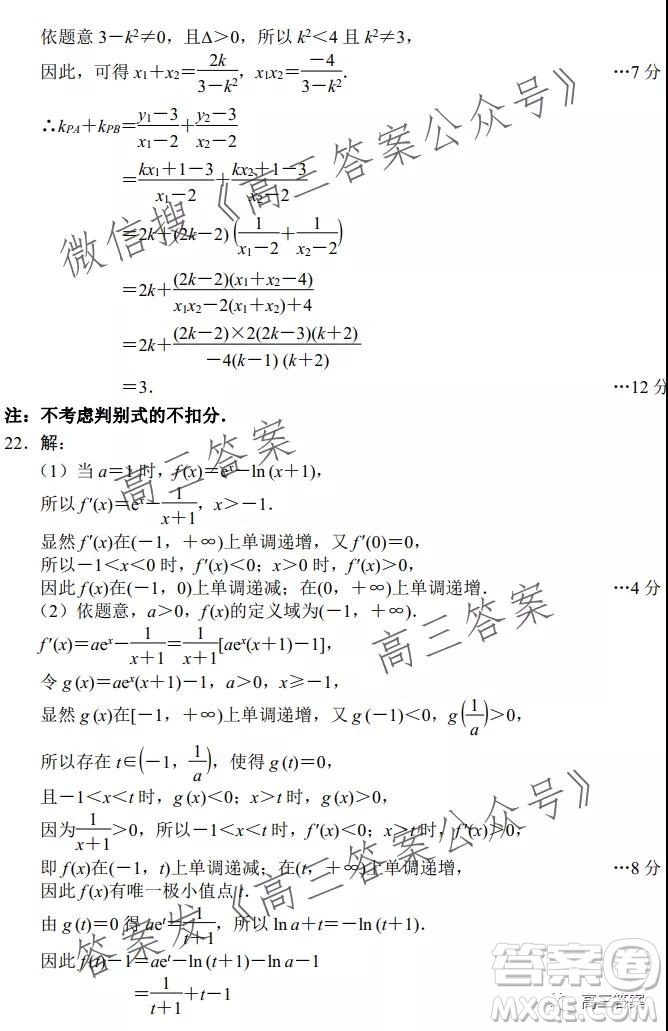 依题意 3－k²≠0，且Δ＞0，所以 k²＜4 且 k²≠3，
因此，可得 x₁＋x₂＝2k/(3－k²)，x₁x₂＝－4/(3－k²)． …7 分
∴kPA＋kPB＝(y₁－3)/(x₁－2)＋(y₂－3)/(x₂－2)
＝(kx₁＋1－3)/(x₁－2)＋(kx₂＋1－3)/(x₂－2)
＝2k＋(2k－2)(1/(x₁－2)＋1/(x₂－2))
＝2k＋(2k－2)(x₁＋x₂－4)/(x₁x₂－2(x₁＋x₂)＋4)
＝2k＋(2k－2)×2(2k－3)(k＋2)/(－4(k－1)(k＋2))
＝3． …12 分
注：不考虑判别式的不扣分．
22．解：
（1）当 a＝1 时，f(x)＝eˣ－ln (x＋1)，
所以 f′(x)＝eˣ－1/(x＋1)，x＞－1．
显然 f′(x)在(－1，＋∞)上单调递增，又 f′(0)＝0，
所以－1＜x＜0 时，f′(x)＜0；x＞0 时，f′(x)＞0，
因此 f(x)在(－1，0)上单调递减；在(0，＋∞)上单调递增． …4 分
（2）依题意，a＞0，f(x)的定义域为(－1，＋∞)．
f′(x)＝aeˣ－1/(x＋1)＝1/(x＋1)[aeˣ(x＋1)－1]，
令 g (x)＝aeˣ(x＋1)－1，a＞0，x≥－1，
显然 g (x)在[－1，＋∞)上单调递增，又 g (－1)＜0，g(1/a)＞0，
所以存在 t∈(－1，1/a)，使得 g (t)＝0，
且－1＜x＜t 时，g (x)＜0；x＞t 时，g (x)＞0，
因为1/(x＋1)＞0，所以－1＜x＜t 时，f′(x)＜0；x＞t 时，f′(x)＞0，
即 f(x)在(－1，t)上单调递减；在(t，＋∞)上单调递增， …8 分
因此 f(x)有唯一极小值点 t．
由 g (t)＝0 得 aeᵗ＝1/(t＋1)，所以 ln a＋t＝－ln (t＋1)．
因此 f(t)－1＝aeᵗ－ln (t＋1)－ln a－1
＝1/(t＋1)＋t－1
微信搜《高三答案公众号》
高三答案
高三答案
答案发《高三答案公众号》
高三答案
答案圈
MXQE.COM